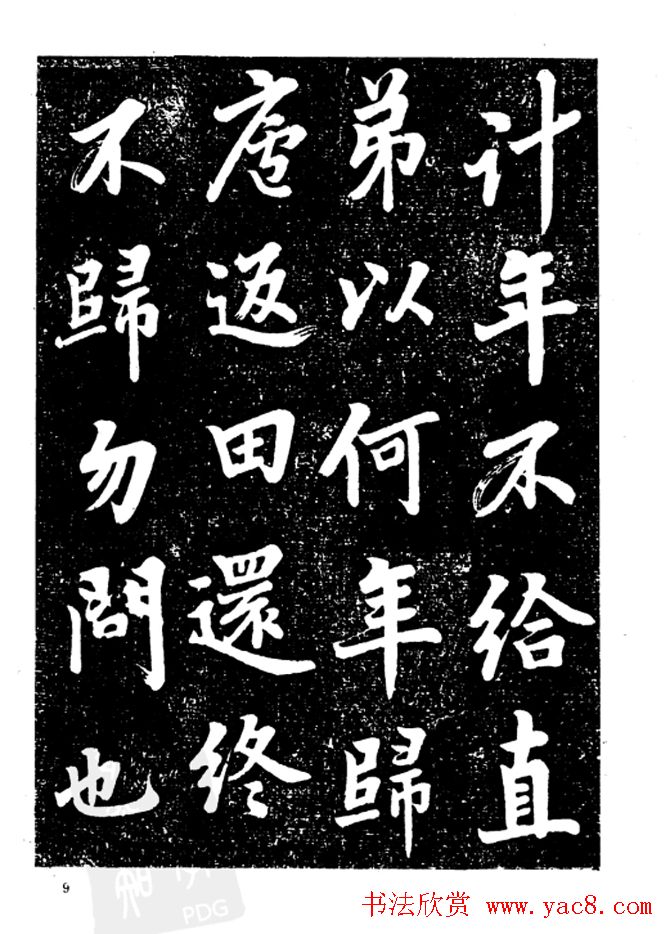 计年不给直
弟以何年歸
返田還终
不歸勿問也
9
PDG
书法欣赏 www.yac8.com